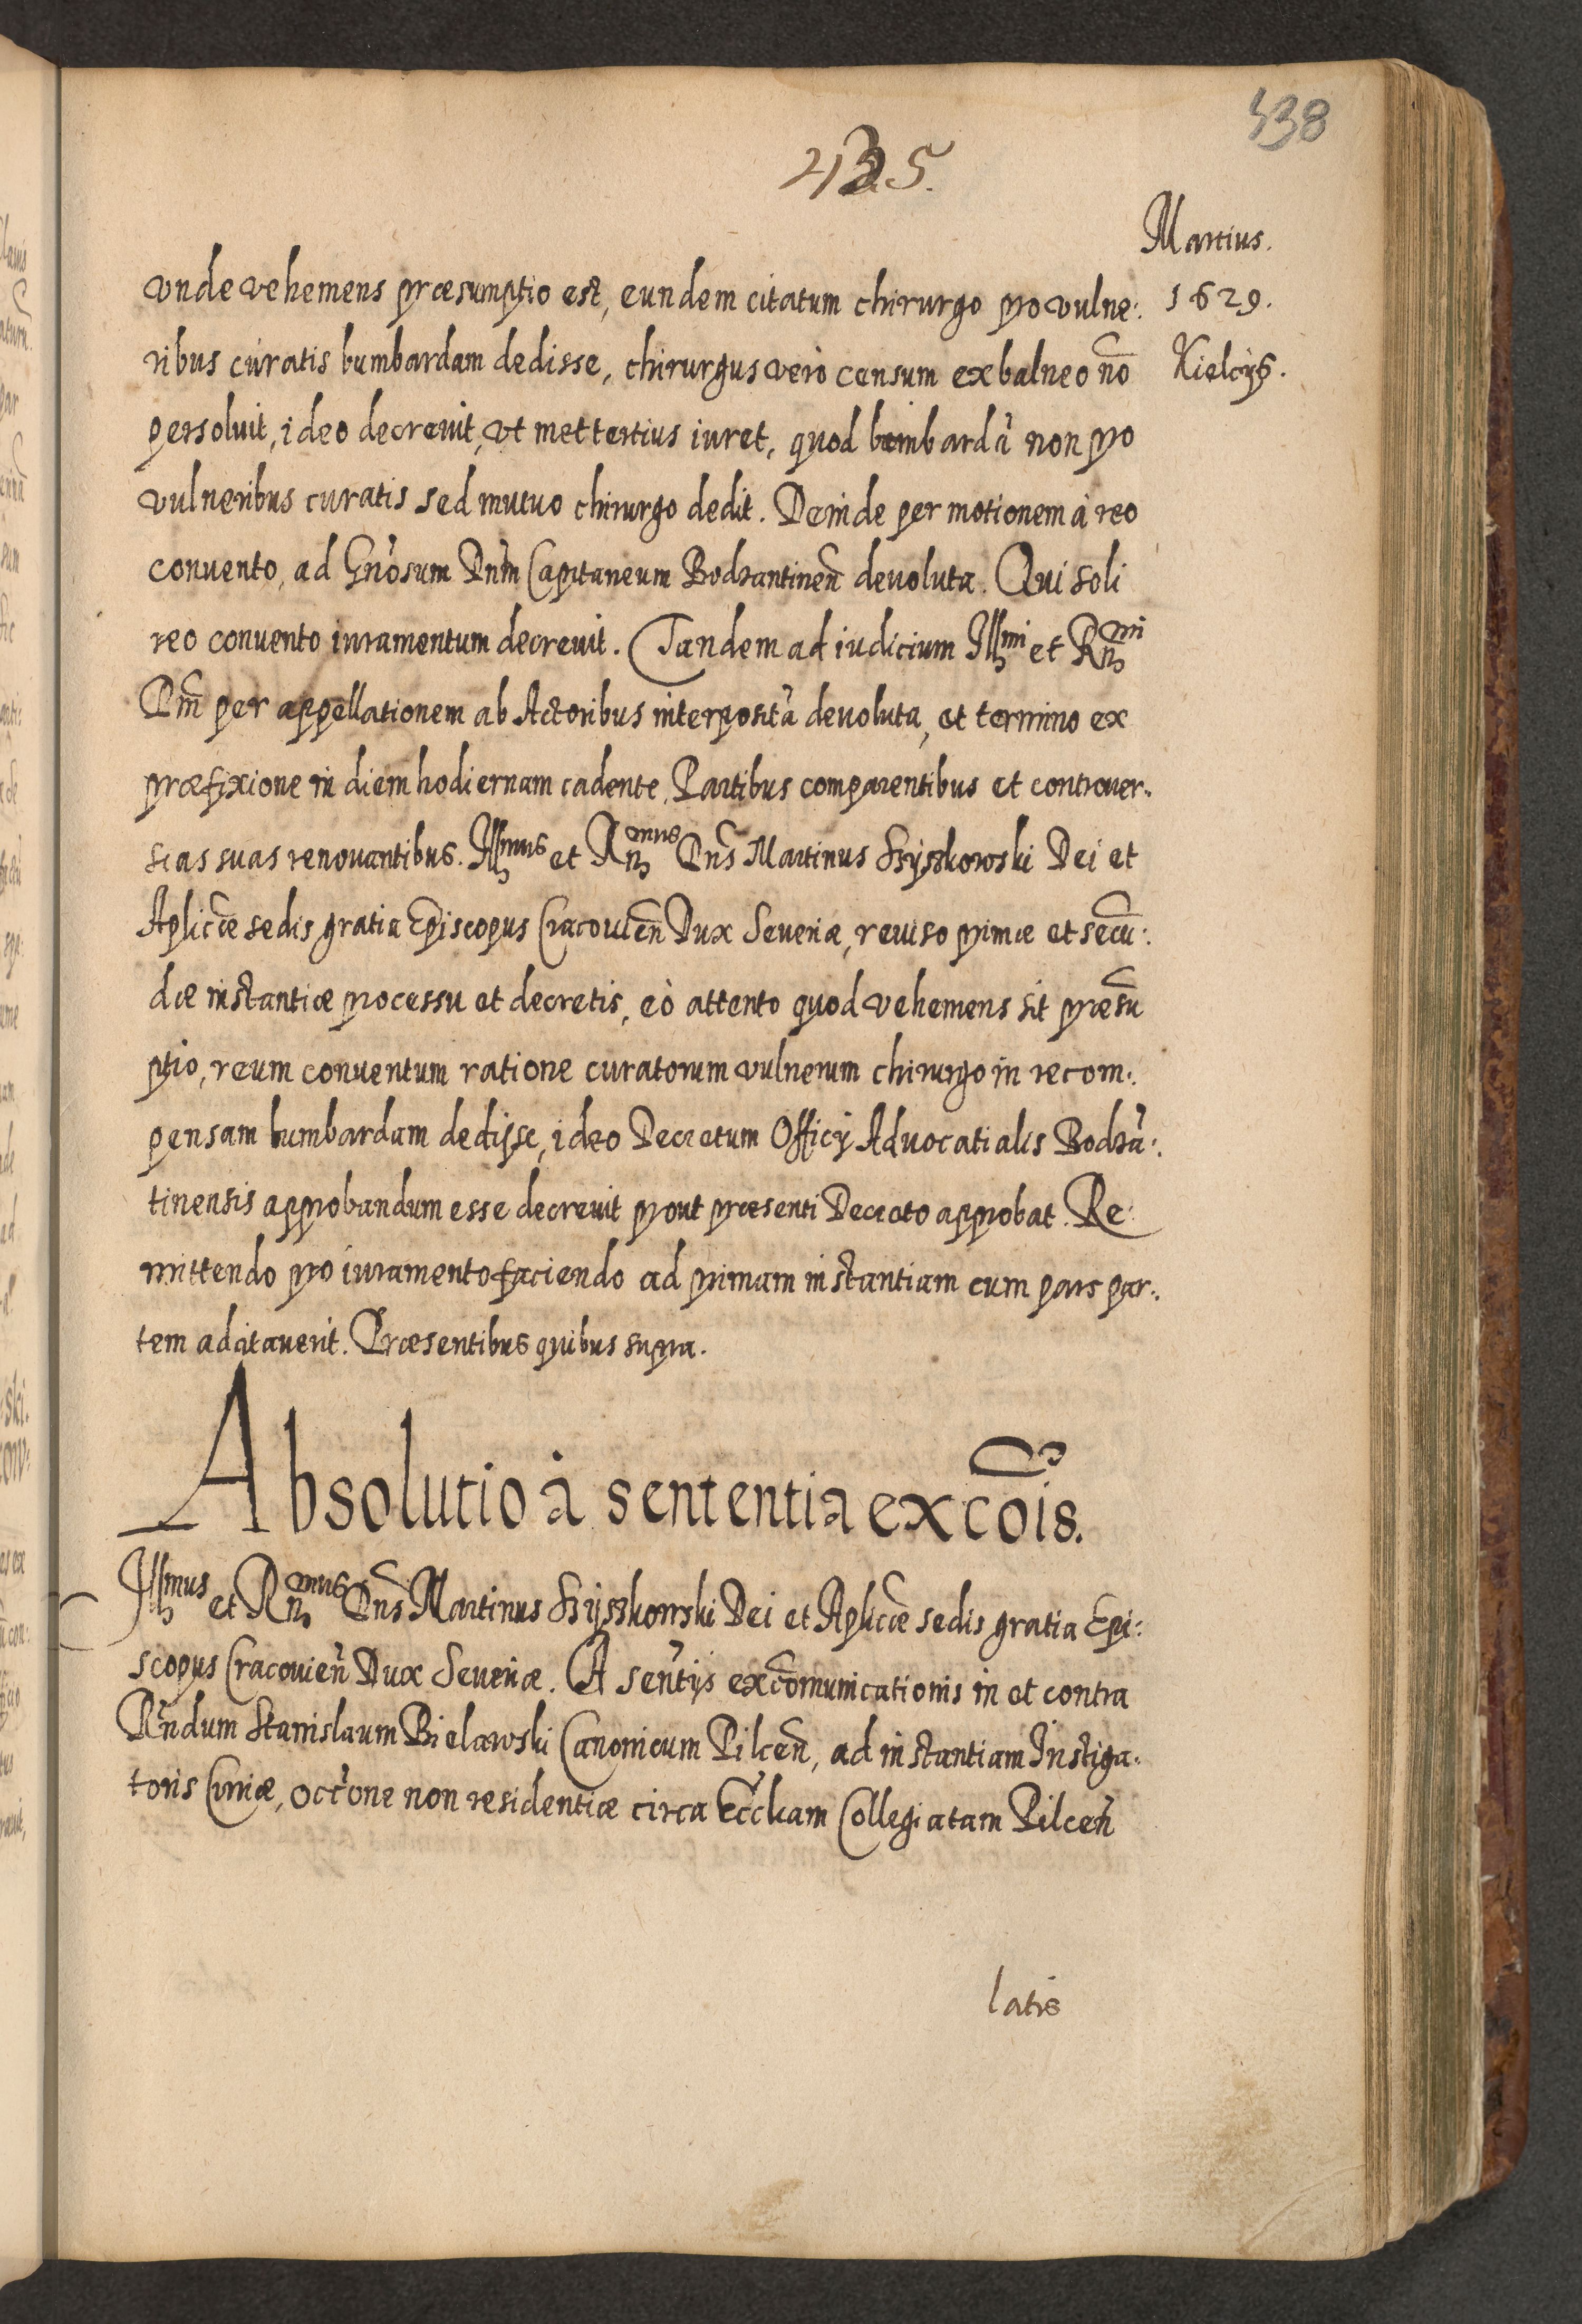 438
435.
Martius.
1629.
Kielcÿs.
vnde vehemens præsumptio est, eundem citatum chirurgo pro vulne:
ribus curatis bumbardam dedisse, chirurgus verò censum ex balneo nō
persoluit, ideo decreuit, vt mettertius iuret, quod bombardā non pro
vulneribus curatis sed mutuo chirurgo dedit. Deinde per motionem à reo
conuento, ad Gn̄osum Dn̄m Capitaneum Bodzantinen̄ deuoluta. Qui soli
reo conuento iuramentum decreuit. Tandem ad iudicium Illmi et Rn̄mi
Dn̄i per appellationem ab Actoribus interpositā deuoluta, et termino ex
præfixione in diem hodiernam cadente, Partibus comparentibus et controuer:
sias suas renouantibus. Illmus et Rn̄mus Dn̄s Martinus Szÿszkowski Dei et
Aplicæ sedis gratia Episcopus Cracouien̄ Dux Seueriæ, reuiso primæ et secū:
dæ instantiæ processu et decretis, eò attento quod vehemens sit præsū
ptio, reum conuentum ratione curatorum vulnerum chirurgo in recom:
pensam bumbardam dedisse, ideo Decretum Officÿ Aduocatialis Bodzā:
tinensis approbandum esse decreuit prout præsenti Decreto approbat. Re:
mittendo pro iuramento faciendo ad primam instantiam cum pars par:
tem adcitauerit. Præsentibus quibus supra.
Absolutio à sententia excōis.
Illmus et Rn̄mus Dn̄s Martinus Szÿszkowski Dei et Aplicæ sedis gratia Epi:
scopus Cracouien̄ Dux Seueriæ. A sen̄tÿs excōmunicationis in et contra
Rn̄dum Stanislaum Bielawski Canonicum Pilcen̄, ad instantiam Instiga:
toris Curiæ, occ̄one non residentiæ circa Eccl̄iam Collegiatam Pilcen̄
latis